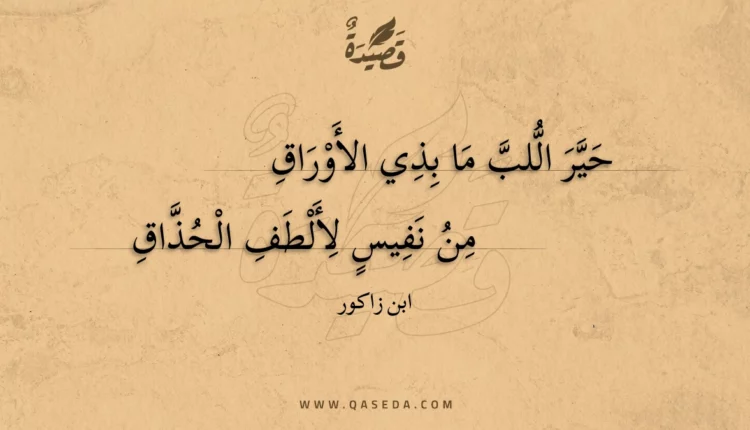 قَصِيْدَةٌ
حَيَّرَ الُّلبَّ مَا بِذِي الأَوْرَاقِ
مِنُ نَفِيسٍ لِأَلْطَفِ الْحُذَّاقِ
ابن زاكور
WWW.QASEDA.COM